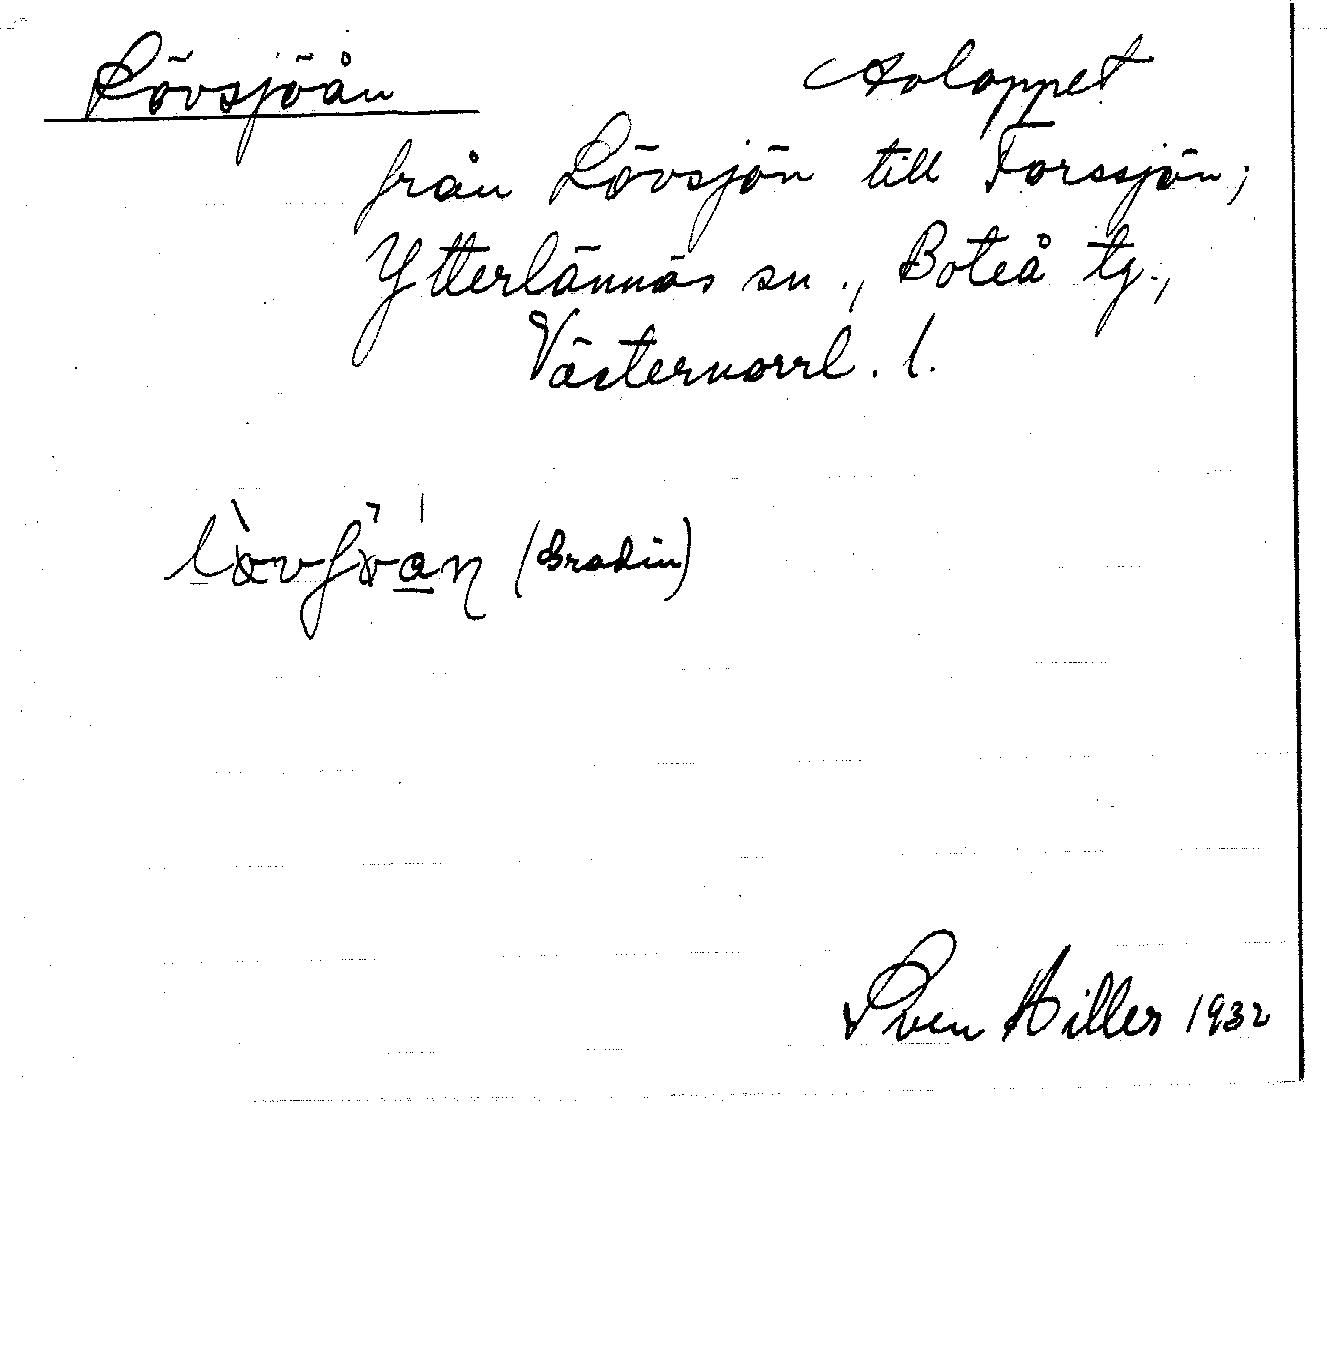 Lövsjöån Avloppet
från Lövsjön till Forssjön;
Ytterlännäs sn., Boteå tg.,
Västernorrl. l.
(Brodin)
Sven Hiller 1932